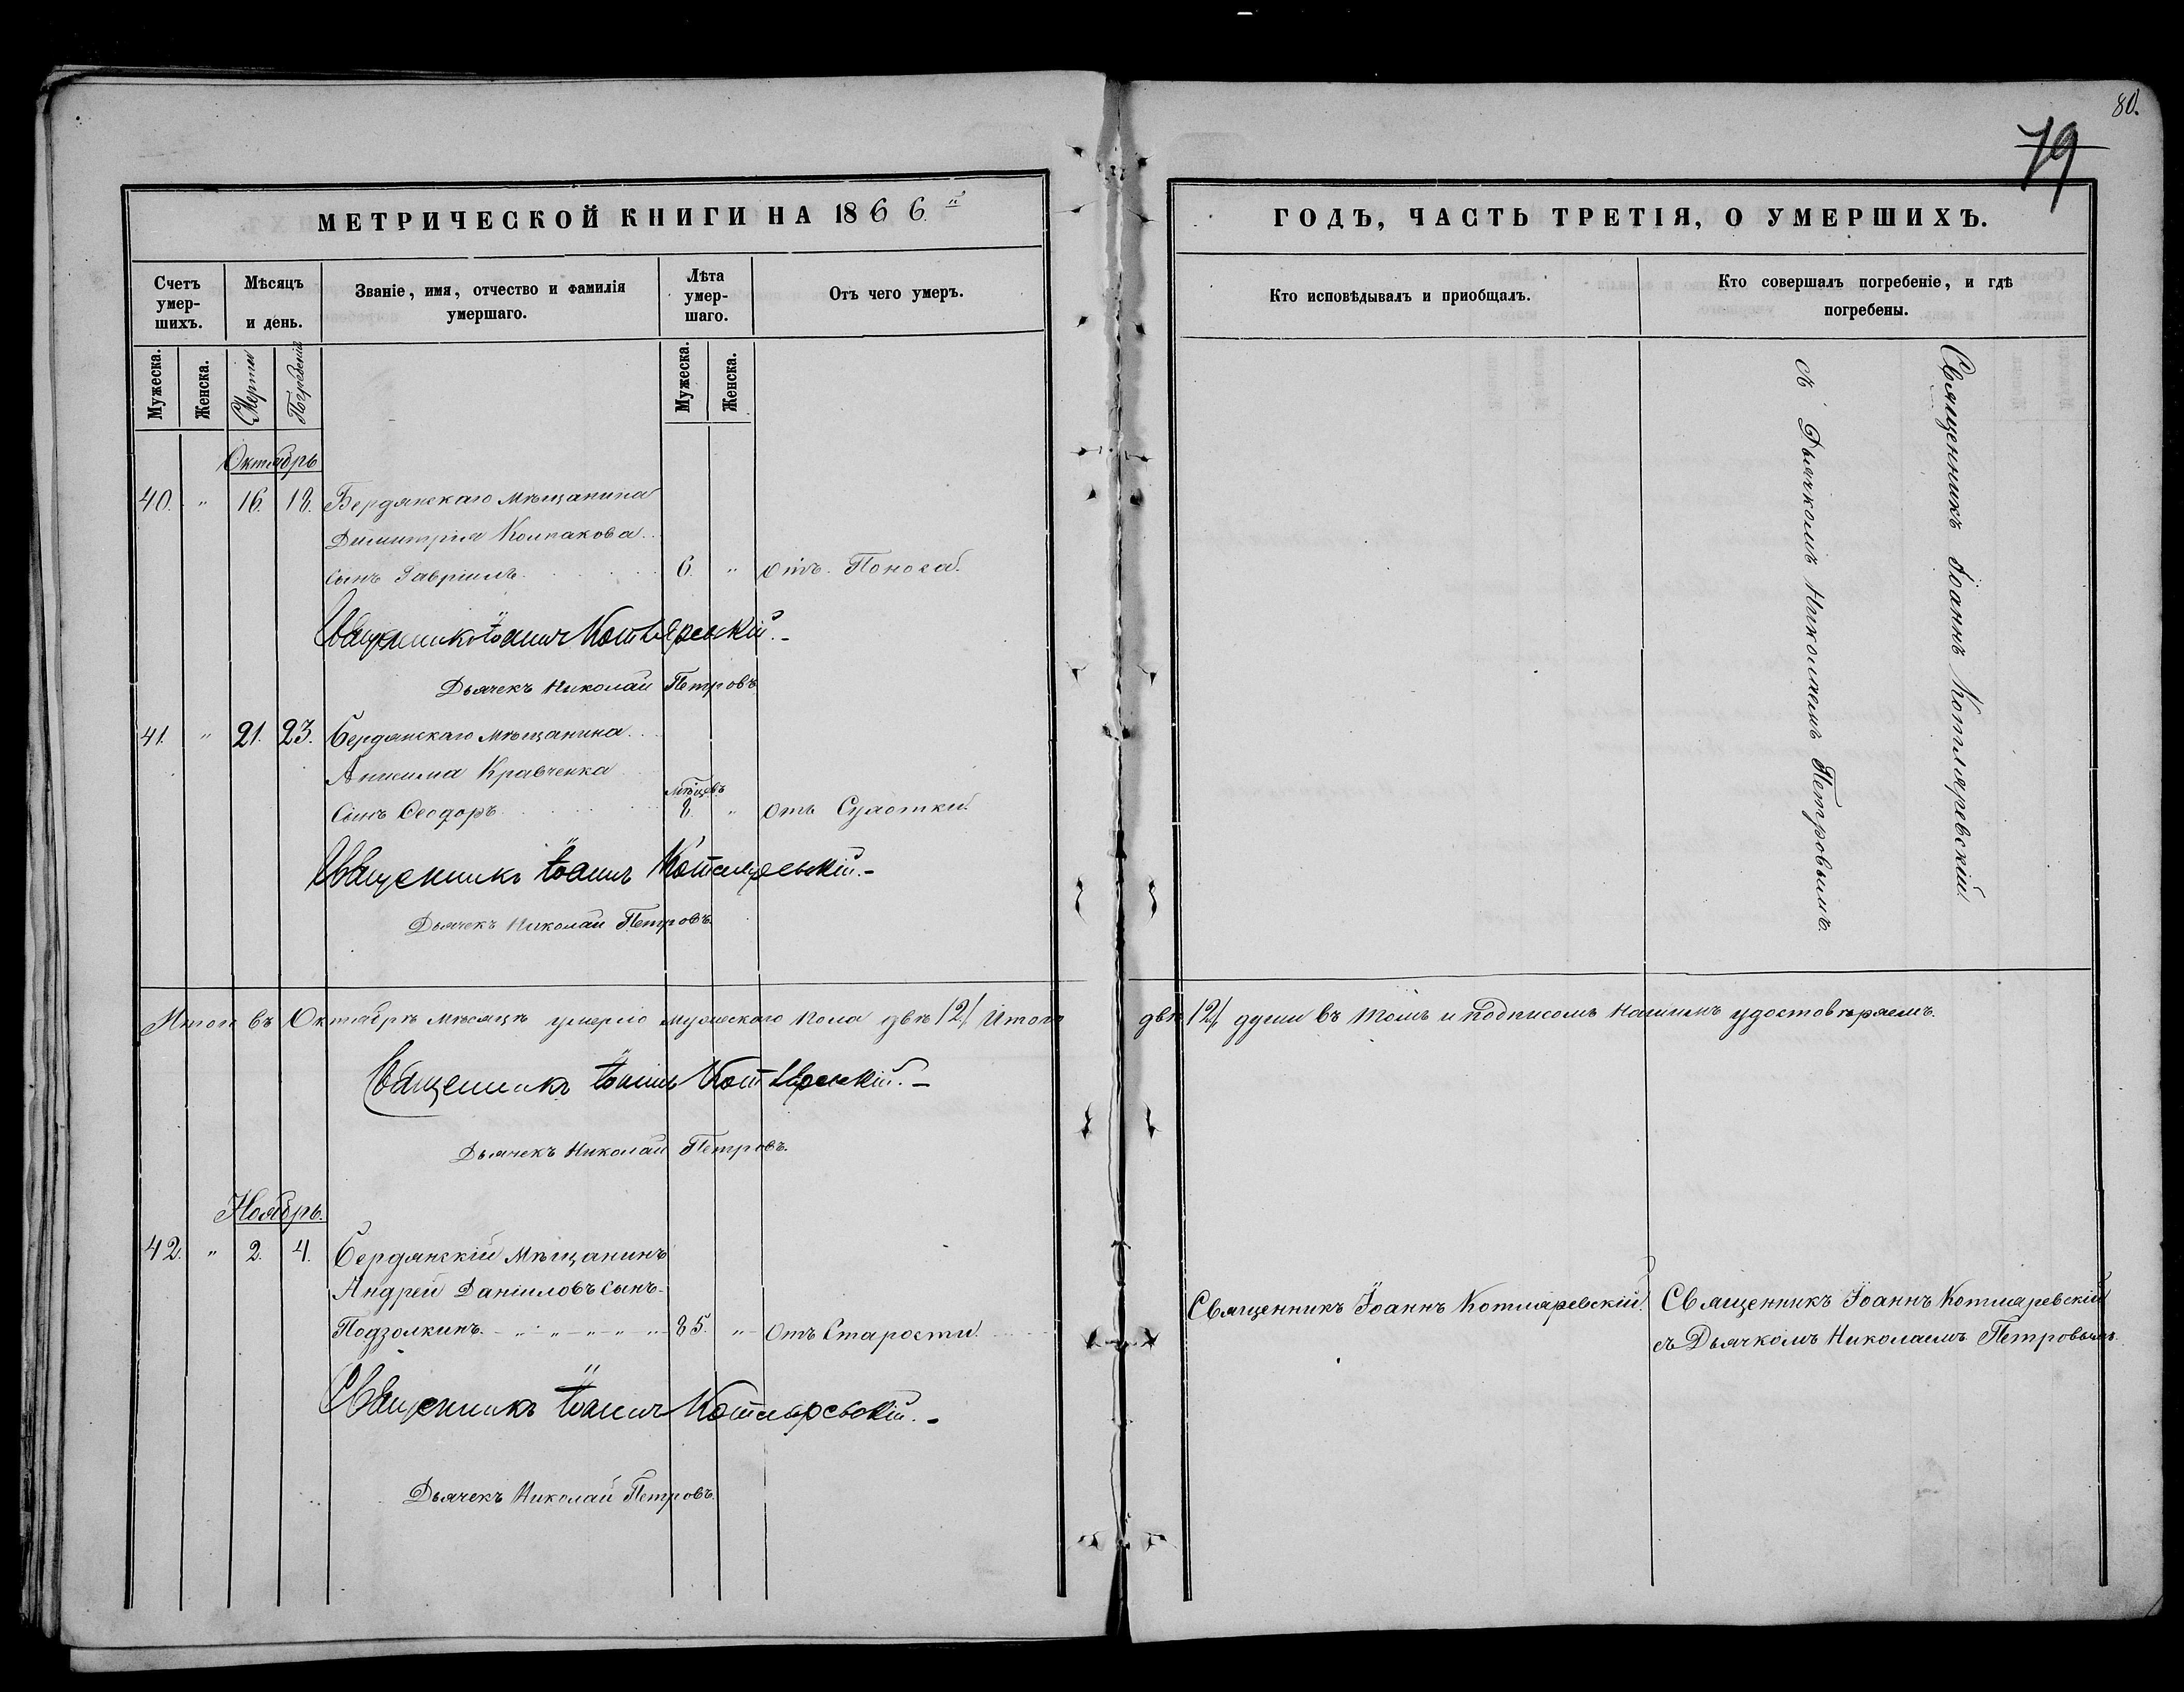 80.
79
МЕТРИЧЕСКОЙ КНИГИ НА 1866й
Счетъ умер-
шихъ.
Мѣсяцъ
и день.
Званіе, имя, отчество и фамилія
умершаго.
Лѣта
умер-
шаго.
Отъ чего умеръ.
Мужеска.
Женска.
Смерти
Погребенія
Мужеска.
Женска.
Октябрь
40. " 16. 18. Бердянскаго Мѣщанина
Димитрія Колпакова
сынъ Гавріилъ 6. " отъ Поноса.
Священникъ Іоаннъ Котляревскій.
Дьячекъ Николай Петровъ
41. " 21. 23. Бердянскаго Мѣщанина
Акима Кравченка
мѣсцевъ
Сынъ Ѳеодоръ 8. " отъ Сухотки.
Священникъ Іоаннъ Котляревскій.
Дьячекъ Николай Петровъ.
Итого въ Октябрѣ мѣсяцѣ умерло мужескаго пола двѣ /2/ Итого
Священникъ Іоаннъ Котляревскій.
Дьячекъ Николай Петровъ.
Ноябрь.
42. " 2. 4. Бердянскій Мѣщанинъ
Андрей Даніиловъ сынъ
Подзолкинъ. 85. " отъ Старости.
Священникъ Іоаннъ Котляревскій.
Дьячекъ Николай Петровъ.
ГОДЪ, ЧАСТЬ ТРЕТІЯ, О УМЕРШИХЪ.
Кто исповѣдывалъ и приобщалъ.
Кто совершалъ погребеніе, и гдѣ
погребены.
Священникъ Іоаннъ Котляревскій
съ Дьячкомъ Николаемъ Петровымъ.
двѣ /2/ души въ томъ и подписомъ нашимъ удостовѣряемъ.
Священникъ Іоаннъ Котляревскій.
Священникъ Іоаннъ Котляревскій
съ Дьячкомъ Николаемъ Петровымъ.